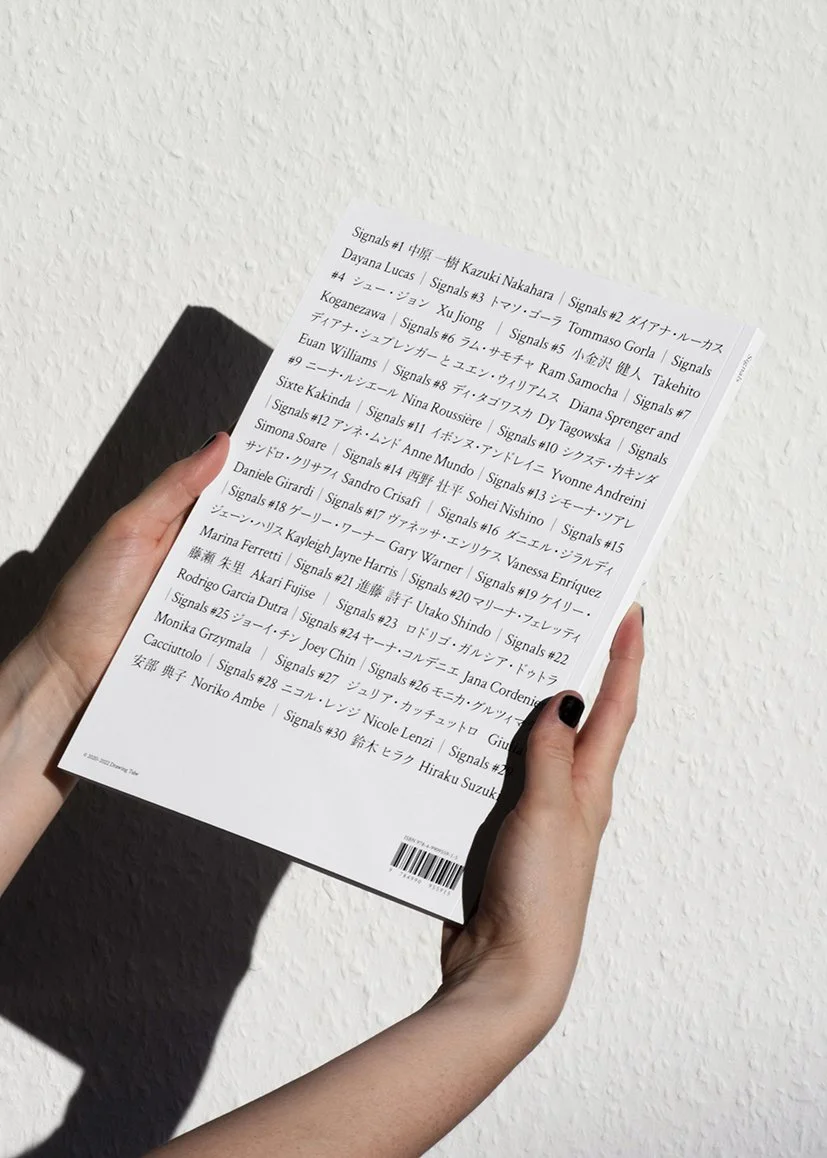 Signals #1 中原 一樹 Kazuki Nakahara | Signals #2 ダイアナ・ルーカス
Dayana Lucas | Signals #3 トマソ・ゴーラ Tommaso Gorla | Signals
#4 シュー・ジョン Xu Jiong | Signals #5 小金沢 健人 Takehito
Koganezawa | Signals #6 ラム・サモチャ Ram Samocha | Signals #7
ディアナ・シュプレンガーと ユエン・ウィリアムス Diana Sprenger and
Euan Williams | Signals #8 ディ・タゴワスカ Dy Tagowska | Signals
#9 ニーナ・ルシエール Nina Roussière | Signals #10 シクステ・カキンダ
Sixte Kakinda | Signals #11 イボンヌ・アンドレイニ Yvonne Andreini
| Signals #12 アンネ・ムンド Anne Mundo | Signals #13 シモーナ・ソアレ
Simona Soare | Signals #14 西野 壮平 Sohei Nishino | Signals #15
サンドロ・クリサフィ Sandro Crisafi | Signals #16 ダニエル・ジラルディ
Daniele Girardi | Signals #17 ヴァネッサ・エンリケス Vanessa Enríquez
| Signals #18 ゲーリー・ワーナー Gary Warner | Signals #19 ケイリー・
ジェーン・ハリス Kayleigh Jayne Harris | Signals #20 マリーナ・フェレッティ
Marina Ferretti | Signals #21 進藤 詩子 Utako Shindo | Signals #22
藤瀬 朱里 Akari Fujise | Signals #23 ロドリゴ・ガルシア・ドゥトラ
Rodrigo Garcia Dutra | Signals #24 ヤーナ・コルデニエ Jana Cordenie
| Signals #25 ジョーイ・チン Joey Chin | Signals #26 モニカ・グルツィマ
Monika Grzymala | Signals #27 ジュリア・カッチュットロ Giulia
Cacciuttolo | Signals #28 ニコル・レンジ Nicole Lenzi | Signals #29
安部 典子 Noriko Ambe | Signals #30 鈴木 ヒラク Hiraku Suzuki
© 2020-2022 Drawing Tube
Signals